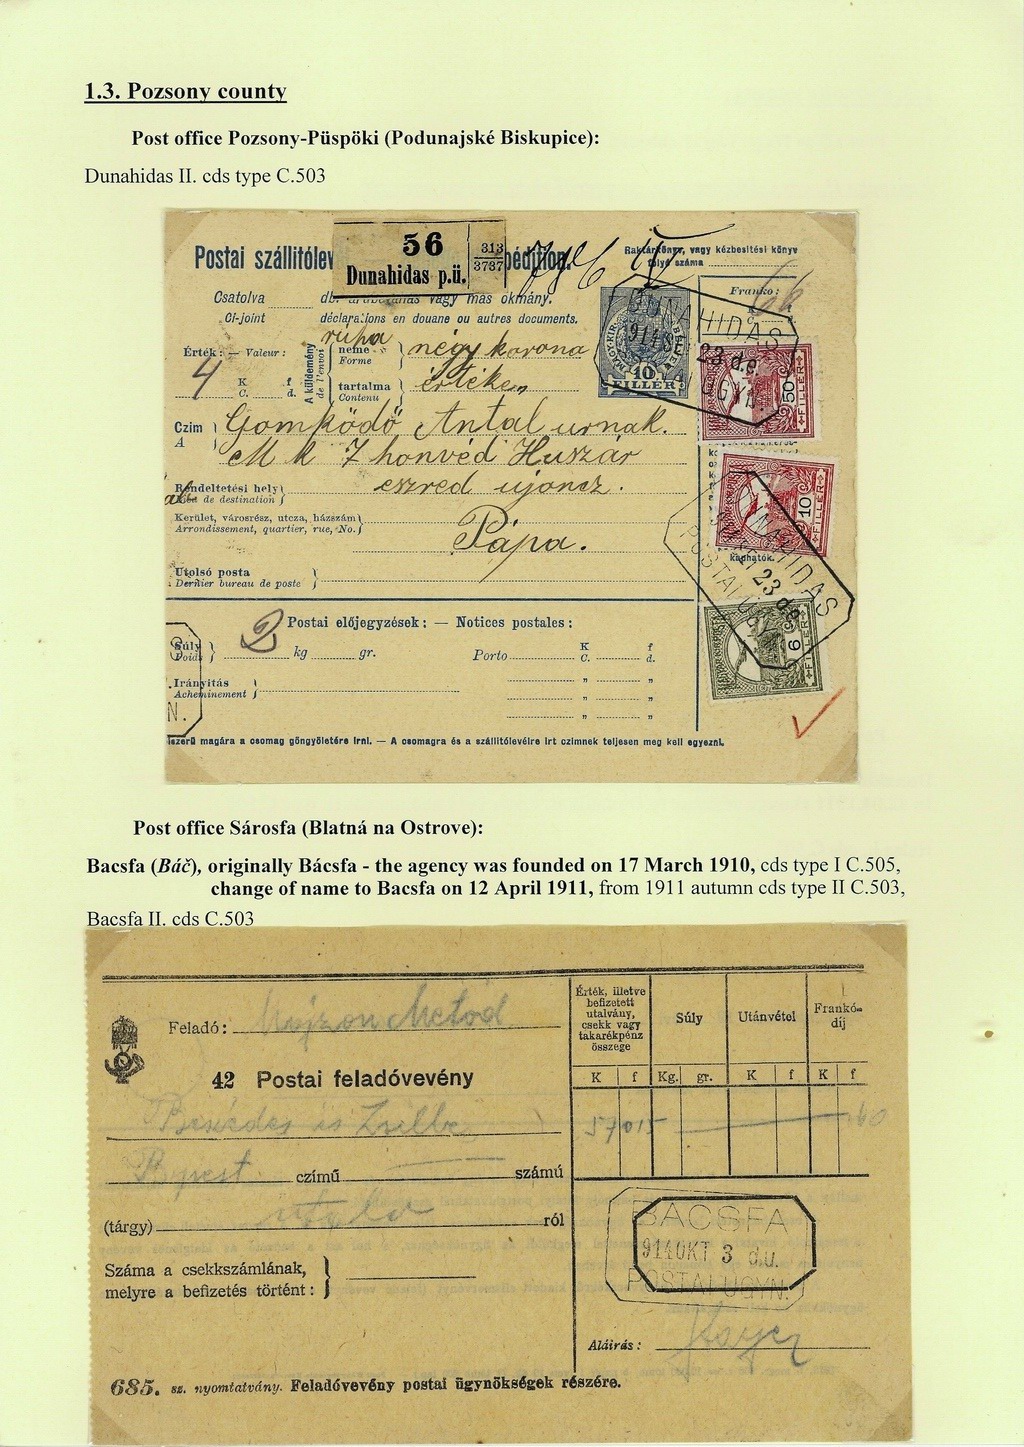 1.3. Pozsony county
Post office Pozsony-Püspöki (Podunajské Biskupice):
Dunahidas II. cds type C.503
Postai szállítólev
56
Dunahidas p.ü.
313
3787
pédition.
Raktárkönyv, vagy kézbesitési könyv
folyó száma
Csatolva db. vagy más okmány.
Ci-joint déclarations en douane ou autres documents.
Franko:
66
Érték: — Valeur:
4
K f
C. d.
A küldemény
de l'envoi
rúpa
neme
Forme
négy korona
tartalma
Contenu
értéken
MAGY. KIR.
10
FILLÉR
DUNAHIDAS
914
23 d.e.
50
FILLÉR
Czim
A
Gombködő Antal urnak.
M k 7 honvéd Huszár
Rendeltetési hely
de destination
eszred ujoncz.
Kerület, városrész, utcza, házszám
Arrondissement, quartier, rue, No.
Pápa.
10
FILLÉR
kaphatók.
DUNAHIDAS
23 d.e.
POSTAI ÜGYN.
Utolsó posta
Dernier bureau de poste
6
FILLÉR
Postai előjegyzések: — Notices postales:
Súly
Poids
2
kg gr.
Porto
K f
C. d.
" "
" "
" "
Irányitás
Acheminement
N.
magára a csomag göngyöletére irni. — A csomagra és a szállítólevélre irt czimnek teljesen meg kell egyezni.
Post office Sárosfa (Blatná na Ostrove):
Bacsfa (Báč), originally Bácsfa - the agency was founded on 17 March 1910, cds type I C.505,
change of name to Bacsfa on 12 April 1911, from 1911 autumn cds type II C.503,
Bacsfa II. cds C.503
Feladó: Metod
42 Postai feladóvevény
Benedek és Zsille
Bpest czímű számú
(tárgy) ról
Száma a csekkszámlának,
melyre a befizetés történt:
Érték, illetve
befizetett
utalvány,
csekk vagy
takarékpénz
összege
Súly
Utánvétel
Frankó-
díj
K f Kg. gr. K f K f
57 015 40
BACSFA
914OKT 3 d.u.
POSTAI ÜGYN.
Aláírás:
685. sz. nyomtatvány. Feladóvevény postai ügynökségek részére.